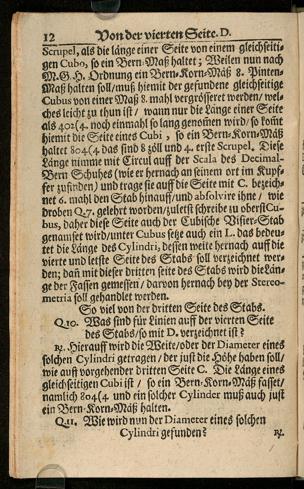 12 Von der vierten Seite. D.
Scrupel, als die länge einer Seite von einem gleichseiti-
gen Cubo, so ein Bern-Maß haltet; Weilen nun nach
M. G. H. Ordnung ein Bern-Korn-Mäß 8. Pinten-
Maß halten soll/ muß hiemit der gefundene gleichseitige
Cubus von einer Maß 8. mahl vergrösseret werden/ wel-
ches leicht zu thun ist/ wann nur die Länge einer Seite
als 402(4. noch einmahl so lang genom̃en wird/ so kom̃t
hiemit die Seite eines Cubi, so ein Bern-Korn-Mäß
haltet 804(4 das sind 8 zöll und 4. erste Scrupel. Diese
Länge nimme mit Circul auff der Scala des Decimal-
Bern Schuhes (wie er hernach an seinem ort im Kupf-
fer zufinden) und trage sie auff die Seite mit C. bezeich-
net 6. mahl den Stab hinauff/ und absolvire ihne/ wie
droben Q. 7. gelehrt worden/ zuletst schreibe zu oberst Cu-
bus, daher diese Seite auch der Cubische Visier-Stab
genamset wird/ unter Cubus setze auch ein L. das bedeu-
tet die Länge des Cylindri, dessen weite hernach auff die
vierte und letste Seite des Stabs soll verzeichnet wer-
den; dañ mit dieser dritten seite des Stabs wird die Län-
ge der Fassen gemessen/ darvon hernach bey der Stereo-
metria soll gehandlet werden.
So viel von der dritten Seite des Stabs.
Q. 10. Was sind für Linien auff der vierten Seite
des Stabs/ so mit D. verzeichnet ist?
℟. Hierauff wird die Weite/ oder der Diameter eines
solchen Cylindri getragen/ der just die Höhe haben soll/
wie auff vorgehender dritten Seite C. Die Länge eines
gleichseitigen Cubi ist/ so ein Bern-Korn-Mäß fasset/
namlich 804(4 und ein solcher Cylinder muß auch just
ein Bern-Korn-Mäß halten.
Q. 11. Wie wird nun der Diameter eines solchen
Cylindri gefunden?
℟.